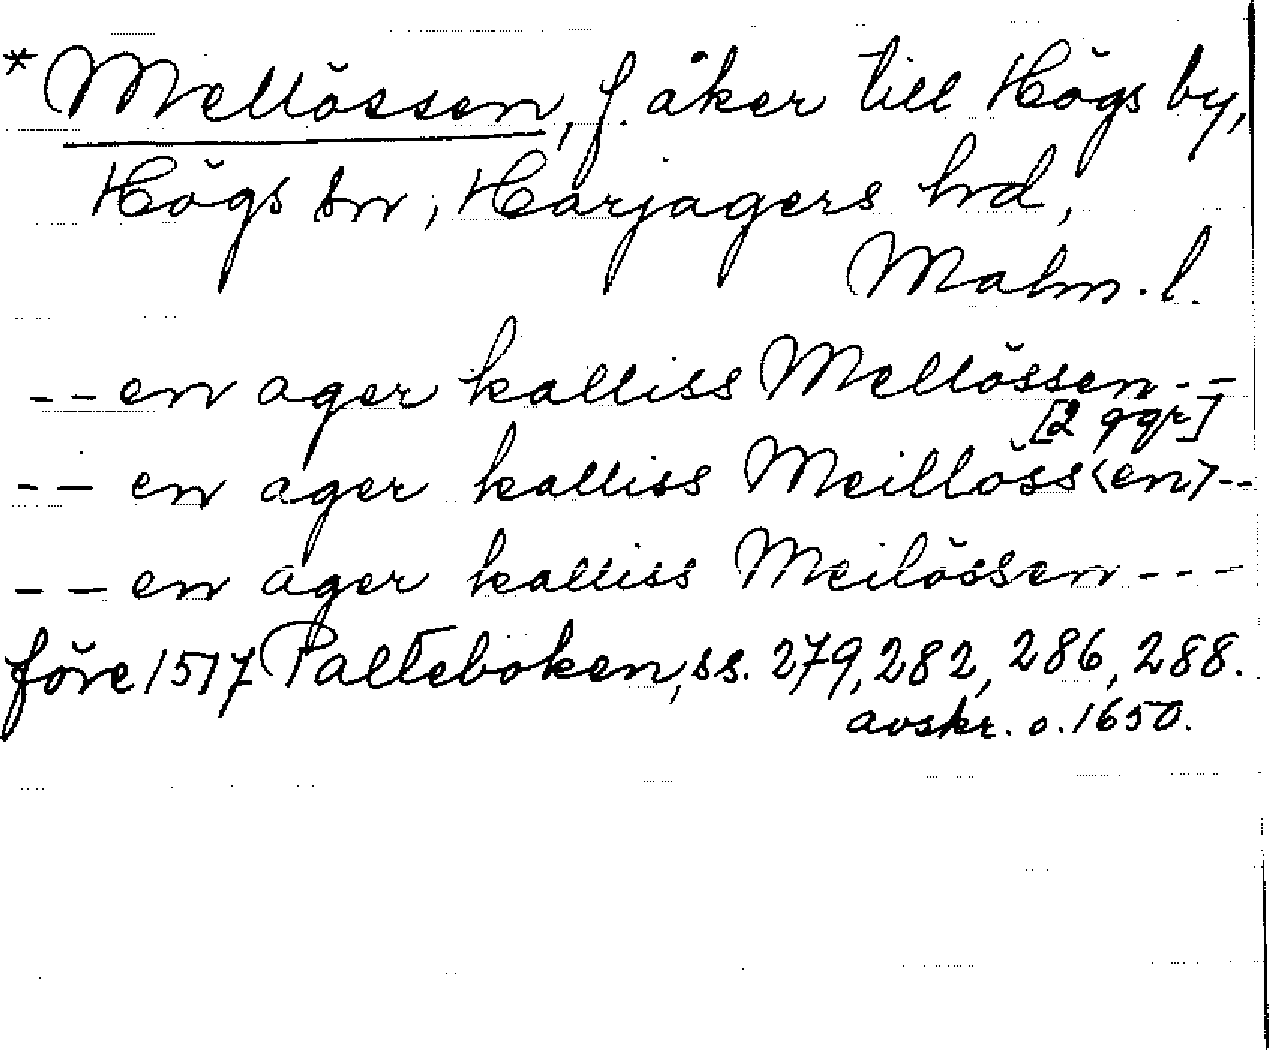 *Mellössen, f. åker till Högs by,
Högs sn, Harjagers hd,
Malm. l.
-- en ager kalliss Mellössen --
[2 ggr]
-- en ager kalliss Meillöss<en> --
-- en ager kalliss Meilössen ---
före 1517 Palteboken, ss. 279, 282, 286, 288.
avskr. o. 1650.